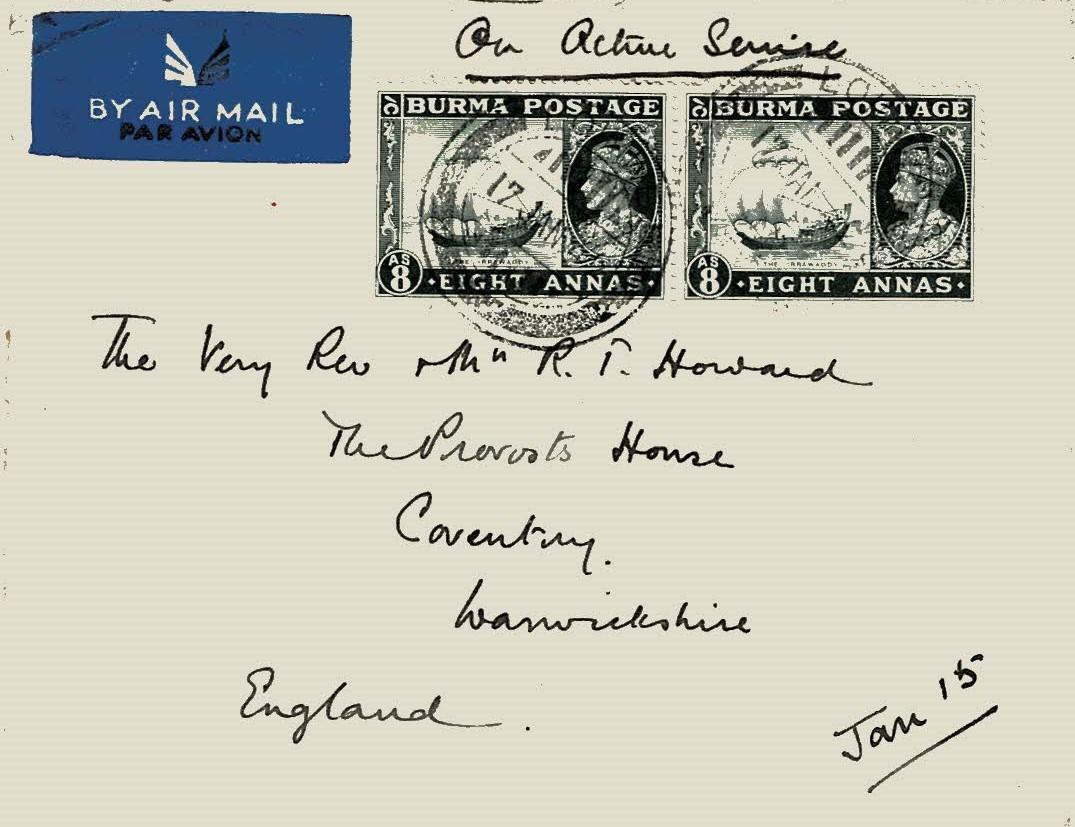 On Active Service
BY AIR MAIL
PAR AVION
BURMA POSTAGE
17 JAN
THE IRRAWADDY
AS 8
EIGHT ANNAS
BURMA POSTAGE
17 JAN
THE IRRAWADDY
AS 8
EIGHT ANNAS
The Very Rev & Mrs R. T. Howard
The Provosts House
Coventry.
Warwickshire
England.
Jan 15